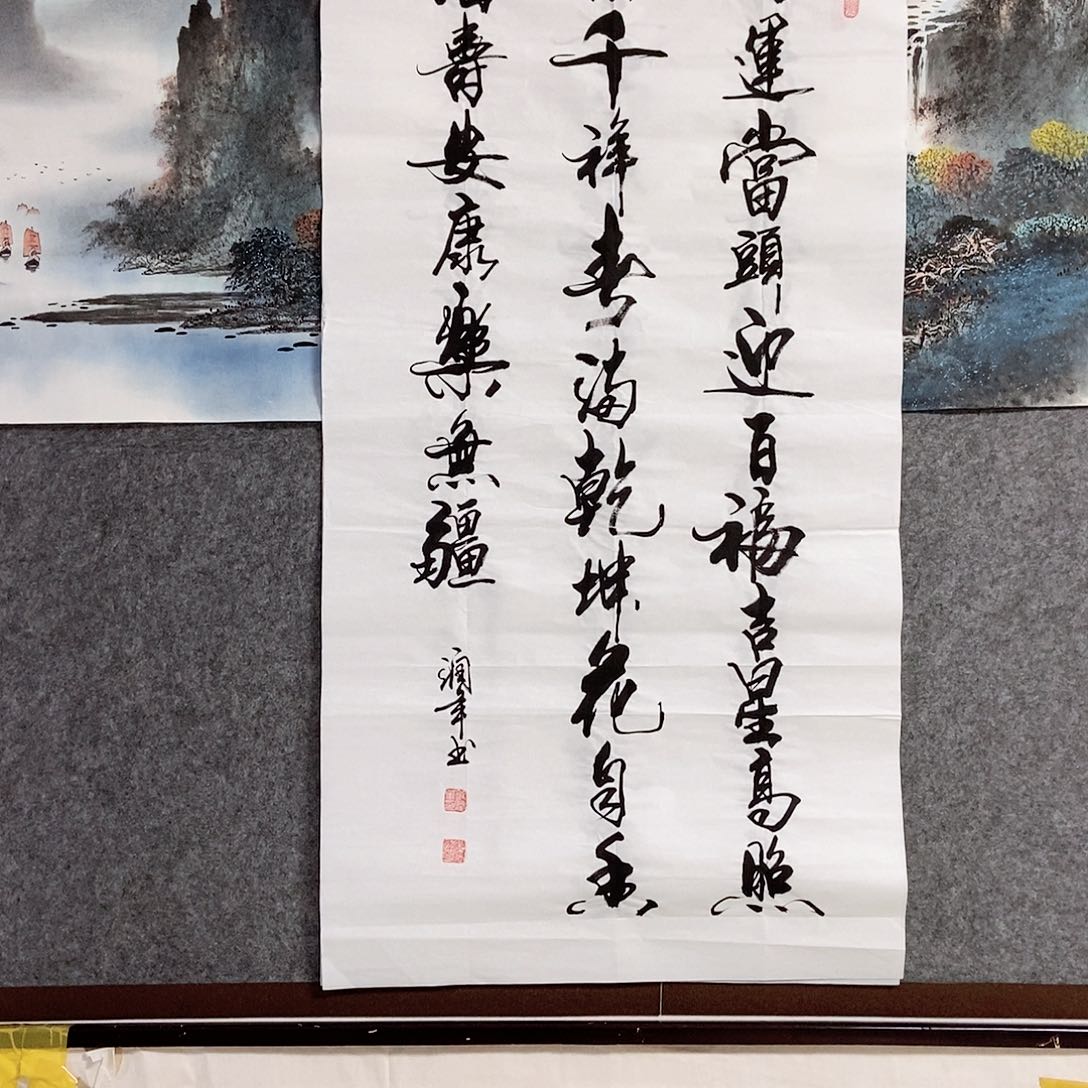 運當頭迎百福吉星高照
千祥春滿乾坤花自香
壽安康樂無疆